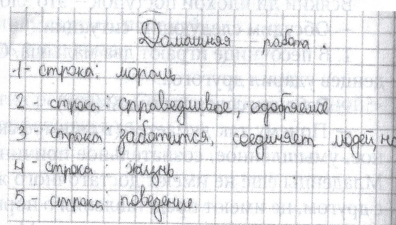 Домашняя работа.
1- строка: мораль
2 - строка: справедливое, одобряемое
3 - строка: заботится, соединяет людей, на
4 - строка: жизнь
5 - строка: поведение.